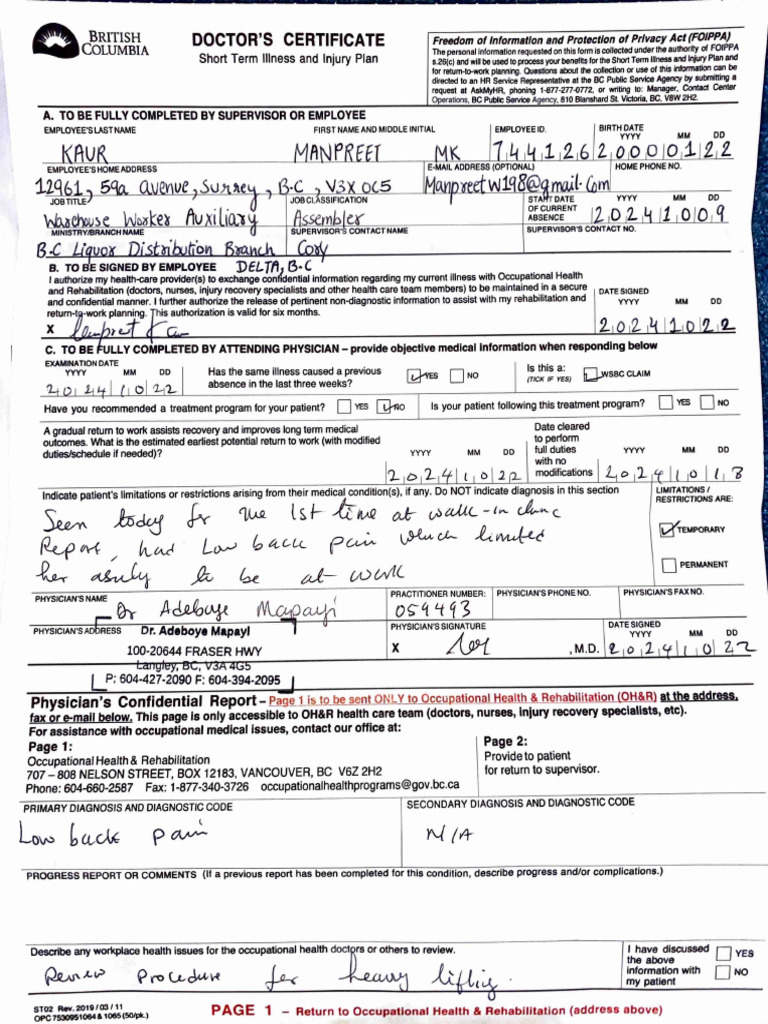 BRITISH COLUMBIA
DOCTOR'S CERTIFICATE
Short Term Illness and Injury Plan
Freedom of Information and Protection of Privacy Act (FOIPPA)
The personal information requested on this form is collected under the authority of FOIPPA
s.26(c) and will be used to process your benefits for the Short Term Illness and Injury Plan and
for return-to-work planning. Questions about the collection or use of this information can be
directed to an HR Service Representative at the BC Public Service Agency by submitting a
request at AskMyHR, phoning 1-877-277-0772, or writing to: Manager, Contact Center
Operations, BC Public Service Agency, 810 Blanshard St. Victoria, BC, V8W 2H2.
A. TO BE FULLY COMPLETED BY SUPERVISOR OR EMPLOYEE
EMPLOYEE'S LAST NAME FIRST NAME AND MIDDLE INITIAL EMPLOYEE ID. BIRTH DATE YYYY MM DD
KAUR MANPREET MK 744126 20000122
EMPLOYEE'S HOME ADDRESS E-MAIL ADDRESS (OPTIONAL) HOME PHONE NO.
12961, 59a avenue, Surrey, B.C, V3X 0C5 ManpreetW198@gmail.com
JOB TITLE JOB CLASSIFICATION START DATE OF CURRENT ABSENCE YYYY MM DD
Warehouse Worker Auxiliary Assembler 20241009
MINISTRY/BRANCH NAME SUPERVISOR'S CONTACT NAME SUPERVISOR'S CONTACT NO.
B.C Liquor Distribution Branch Cory
DELTA, B.C
B. TO BE SIGNED BY EMPLOYEE
I authorize my health-care provider(s) to exchange confidential information regarding my current illness with Occupational Health
and Rehabilitation (doctors, nurses, injury recovery specialists and other health care team members) to be maintained in a secure
and confidential manner. I further authorize the release of pertinent non-diagnostic information to assist with my rehabilitation and
return-to-work planning. This authorization is valid for six months.
DATE SIGNED YYYY MM DD
X 20241022
C. TO BE FULLY COMPLETED BY ATTENDING PHYSICIAN – provide objective medical information when responding below
EXAMINATION DATE YYYY MM DD
20241022
Has the same illness caused a previous absence in the last three weeks? YES NO
Is this a: (TICK IF YES) WSBC CLAIM
Have you recommended a treatment program for your patient? YES NO Is your patient following this treatment program? YES NO
A gradual return to work assists recovery and improves long term medical
outcomes. What is the estimated earliest potential return to work (with modified
duties/schedule if needed)?
YYYY MM DD
20241022
Date cleared to perform full duties with no modifications
YYYY MM DD
20241018
Indicate patient's limitations or restrictions arising from their medical condition(s), if any. Do NOT indicate diagnosis in this section
LIMITATIONS / RESTRICTIONS ARE:
TEMPORARY
PERMANENT
Seen today for the 1st time at walk-in clinic
Report, had Low back pain which limited
her ability to be at work
PHYSICIAN'S NAME PRACTITIONER NUMBER: PHYSICIAN'S PHONE NO. PHYSICIAN'S FAX NO.
Dr Adeboye Mapayi 059493
PHYSICIAN'S ADDRESS PHYSICIAN'S SIGNATURE DATE SIGNED YYYY MM DD
Dr. Adeboye Mapayl
X , M.D. 20241022
100-20644 FRASER HWY
Langley, BC, V3A 4G5
P: 604-427-2090 F: 604-394-2095
Physician's Confidential Report – Page 1 is to be sent ONLY to Occupational Health & Rehabilitation (OH&R) at the address,
fax or e-mail below. This page is only accessible to OH&R health care team (doctors, nurses, injury recovery specialists, etc).
For assistance with occupational medical issues, contact our office at:
Page 1:
Occupational Health & Rehabilitation
707 – 808 NELSON STREET, BOX 12183, VANCOUVER, BC V6Z 2H2
Phone: 604-660-2587 Fax: 1-877-340-3726 occupationalhealthprograms@gov.bc.ca
Page 2:
Provide to patient
for return to supervisor.
PRIMARY DIAGNOSIS AND DIAGNOSTIC CODE SECONDARY DIAGNOSIS AND DIAGNOSTIC CODE
Low back pain N/A
PROGRESS REPORT OR COMMENTS (If a previous report has been completed for this condition, describe progress and/or complications.)
Describe any workplace health issues for the occupational health doctors or others to review.
Review Procedure for heavy lifting.
I have discussed the above information with my patient YES NO
ST02 Rev. 2019 / 03 / 11
OPC 7530951064 & 1065 (50/pk.)
PAGE 1 – Return to Occupational Health & Rehabilitation (address above)